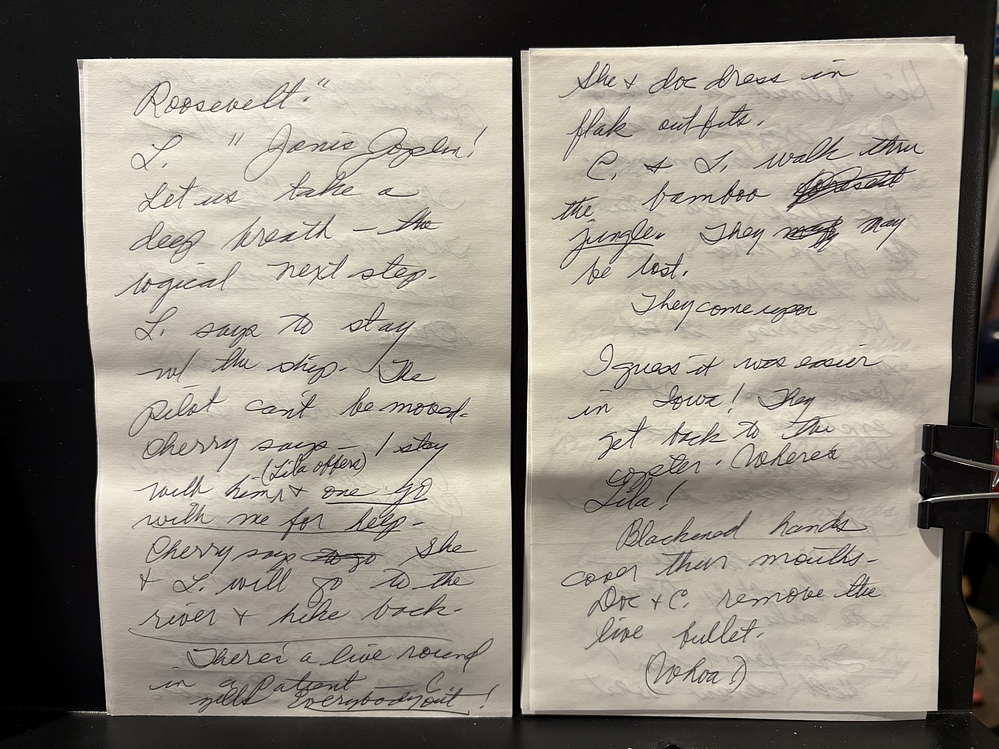 Roosevelt."
L. " Janis Joplin!
Let us take a
deep breath – the
logical next step.
L. says to stay
w/ the ship. The
pilot can't be moved.
Cherry says – I stay
(Lila offers)
with him, & one go
with me for help.
Cherry says to go She
& L. will go to the
river & hike back.
There's a live round
in a Patient – C.
yells Everybody out!
She & doc dress in
flak outfits.
C. & L. walk thru
the bamboo
jungle. They may
be lost.
They come upon
I guess it was easier
in Iowa! They
get back to the
copter. Where's
Lila!
Blackened hands
cover their mouths.
Doc & C. remove the
live bullet.
(Whoa!)